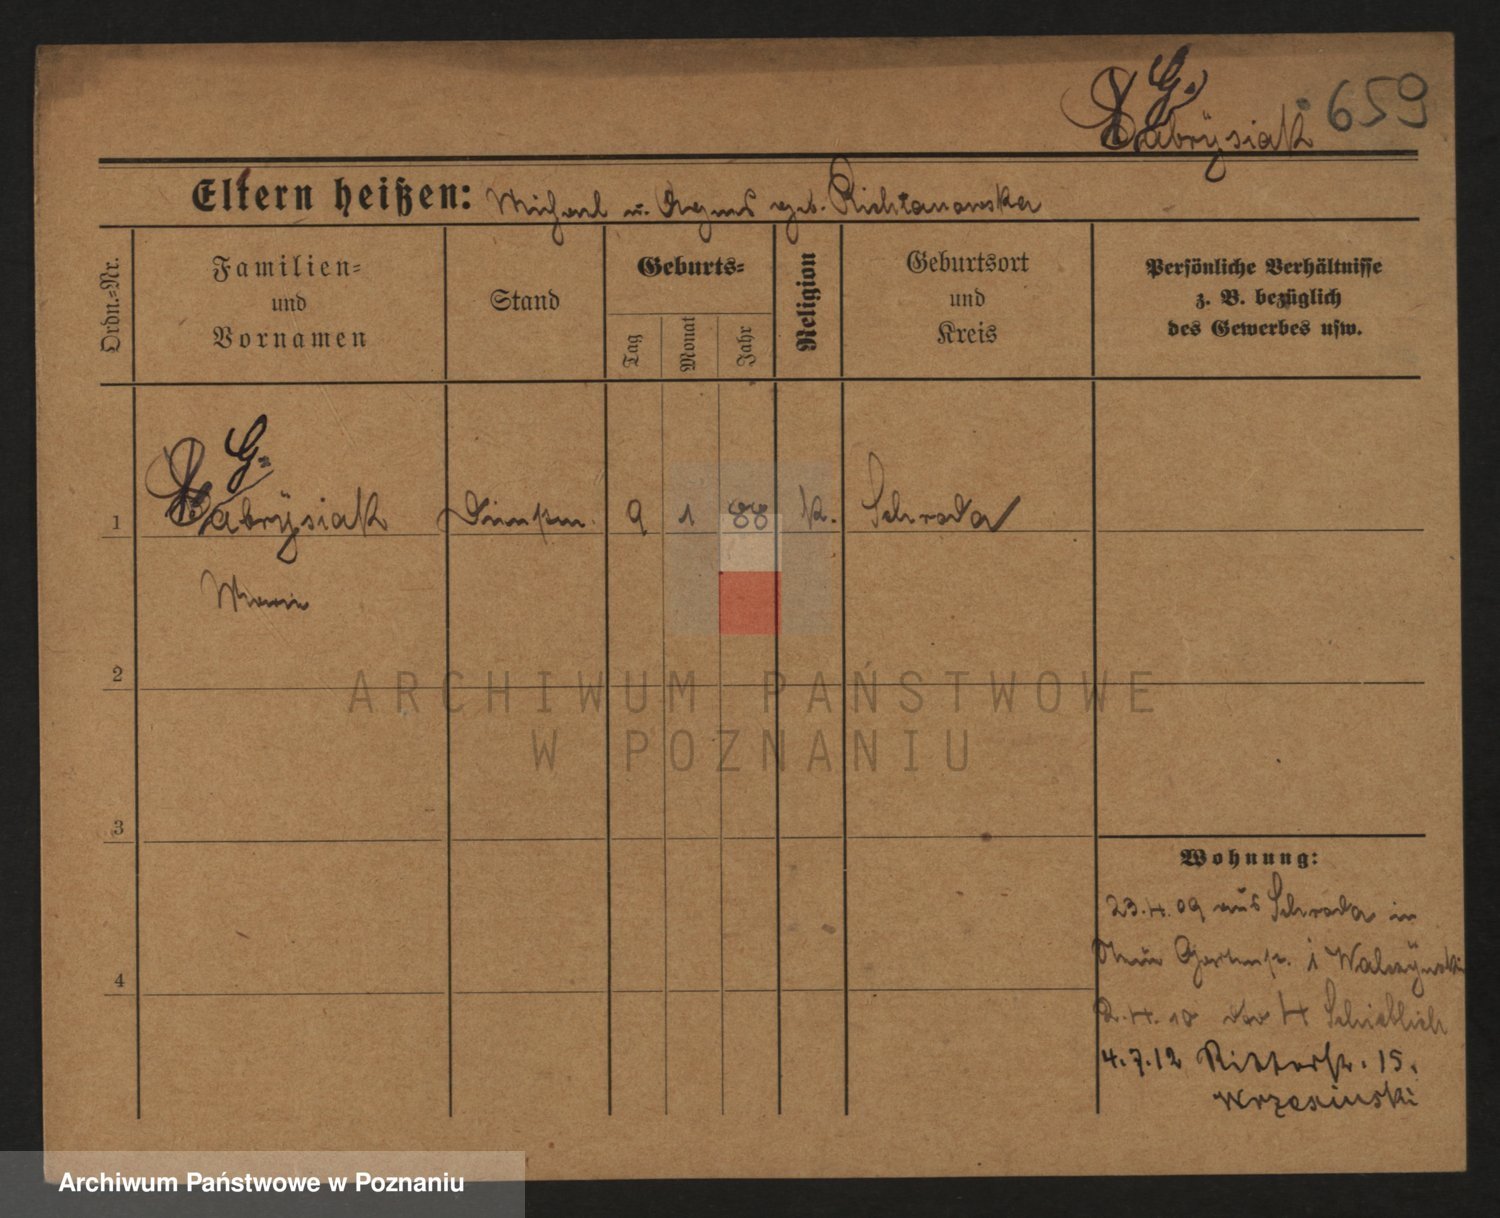 G.
Gabrÿsiak 659
Eltern heißen: Michael u. Agnes geb. Richtanowska
Ordn.=Nr.
Familien=
und
Vornamen
Stand
Geburts=
Tag
Monat
Jahr
Religion
Geburtsort
und
Kreis
Persönliche Verhältnisse
z. B. bezüglich
des Gewerbes usw.
G.
1 Gabrÿsiak 9 1 88 k. Schroda
2
3
4
Wohnung:
23.4.09 aus Schroda in
i Walczÿnski
4.7.12 Ritterstr. 15.
Wrzesinski
ARCHIWUM PAŃSTWOWE
W POZNANIU
Archiwum Państwowe w Poznaniu